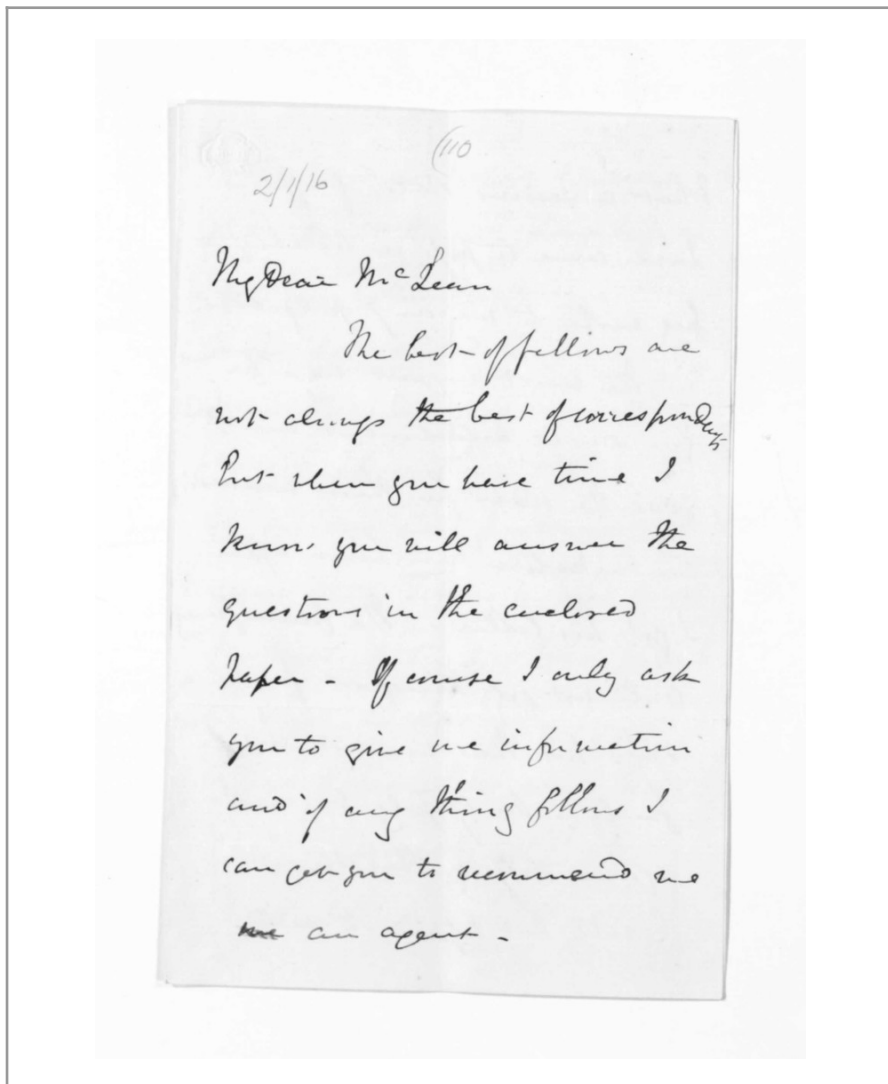 (110
2/1/16
My Dear McLean
The best of fellows are
not always the best of correspondents
but when you have time I
know you will answer the
questions in the enclosed
paper - Of course I only ask
you to give me information
and if any thing follows I
can get you to recommend me
me an agent -